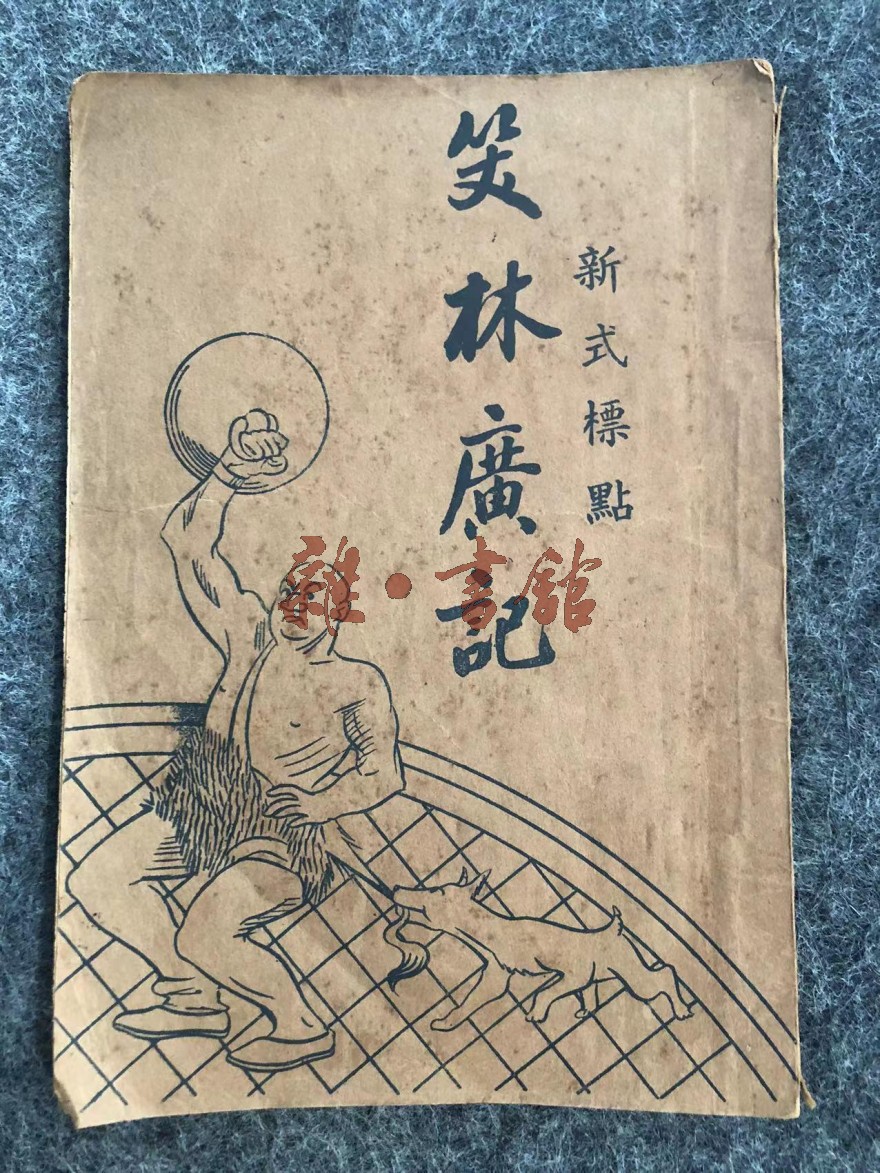 新式標點
笑林廣記
雜·書館